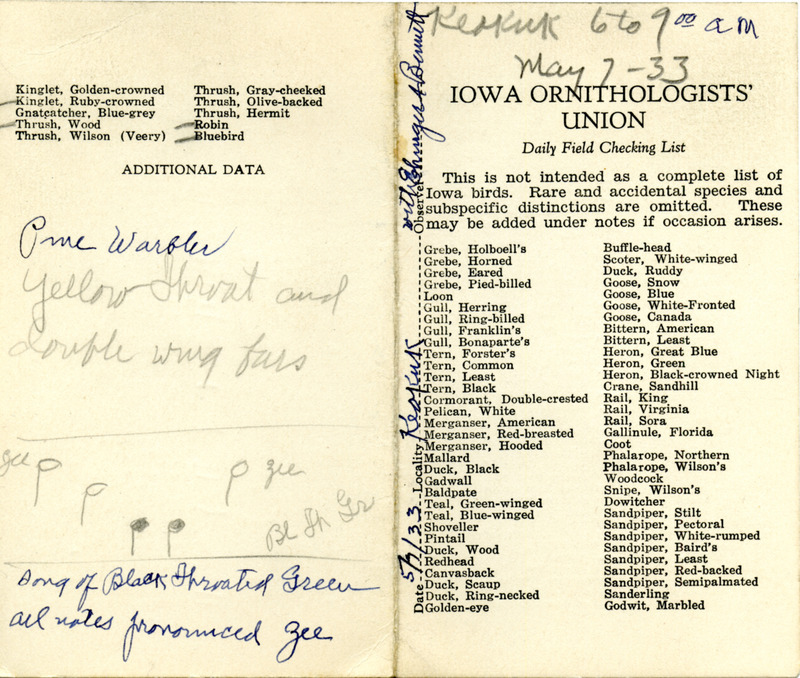 Kinglet, Golden-crowned
Kinglet, Ruby-crowned
Gnatcatcher, Blue-grey
Thrush, Wood
Thrush, Wilson (Veery)
Thrush, Gray-cheeked
Thrush, Olive-backed
Thrush, Hermit
Robin
Bluebird
ADDITIONAL DATA
Pine Warbler
Yellow Throat and
double wing bars
zee
zee
Bl Th Gr
song of Black Throated Green
all notes pronounced zee
Date 5/7/33 Locality Keokuk Observer with Ehinger & Bennett
Keokuk 6 to 9 00 a m
May 7-33
IOWA ORNITHOLOGISTS'
UNION
Daily Field Checking List
This is not intended as a complete list of
Iowa birds. Rare and accidental species and
subspecific distinctions are omitted. These
may be added under notes if occasion arises.
Grebe, Holboell's
Grebe, Horned
Grebe, Eared
Grebe, Pied-billed
Loon
Gull, Herring
Gull, Ring-billed
Gull, Franklin's
Gull, Bonaparte's
Tern, Forster's
Tern, Common
Tern, Least
Tern, Black
Cormorant, Double-crested
Pelican, White
Merganser, American
Merganser, Red-breasted
Merganser, Hooded
Mallard
Duck, Black
Gadwall
Baldpate
Teal, Green-winged
Teal, Blue-winged
Shoveller
Pintail
Duck, Wood
Redhead
Canvasback
Duck, Scaup
Duck, Ring-necked
Golden-eye
Buffle-head
Scoter, White-winged
Duck, Ruddy
Goose, Snow
Goose, Blue
Goose, White-Fronted
Goose, Canada
Bittern, American
Bittern, Least
Heron, Great Blue
Heron, Green
Heron, Black-crowned Night
Crane, Sandhill
Rail, King
Rail, Virginia
Rail, Sora
Gallinule, Florida
Coot
Phalarope, Northern
Phalarope, Wilson's
Woodcock
Snipe, Wilson's
Dowitcher
Sandpiper, Stilt
Sandpiper, Pectoral
Sandpiper, White-rumped
Sandpiper, Baird's
Sandpiper, Least
Sandpiper, Red-backed
Sandpiper, Semipalmated
Sanderling
Godwit, Marbled